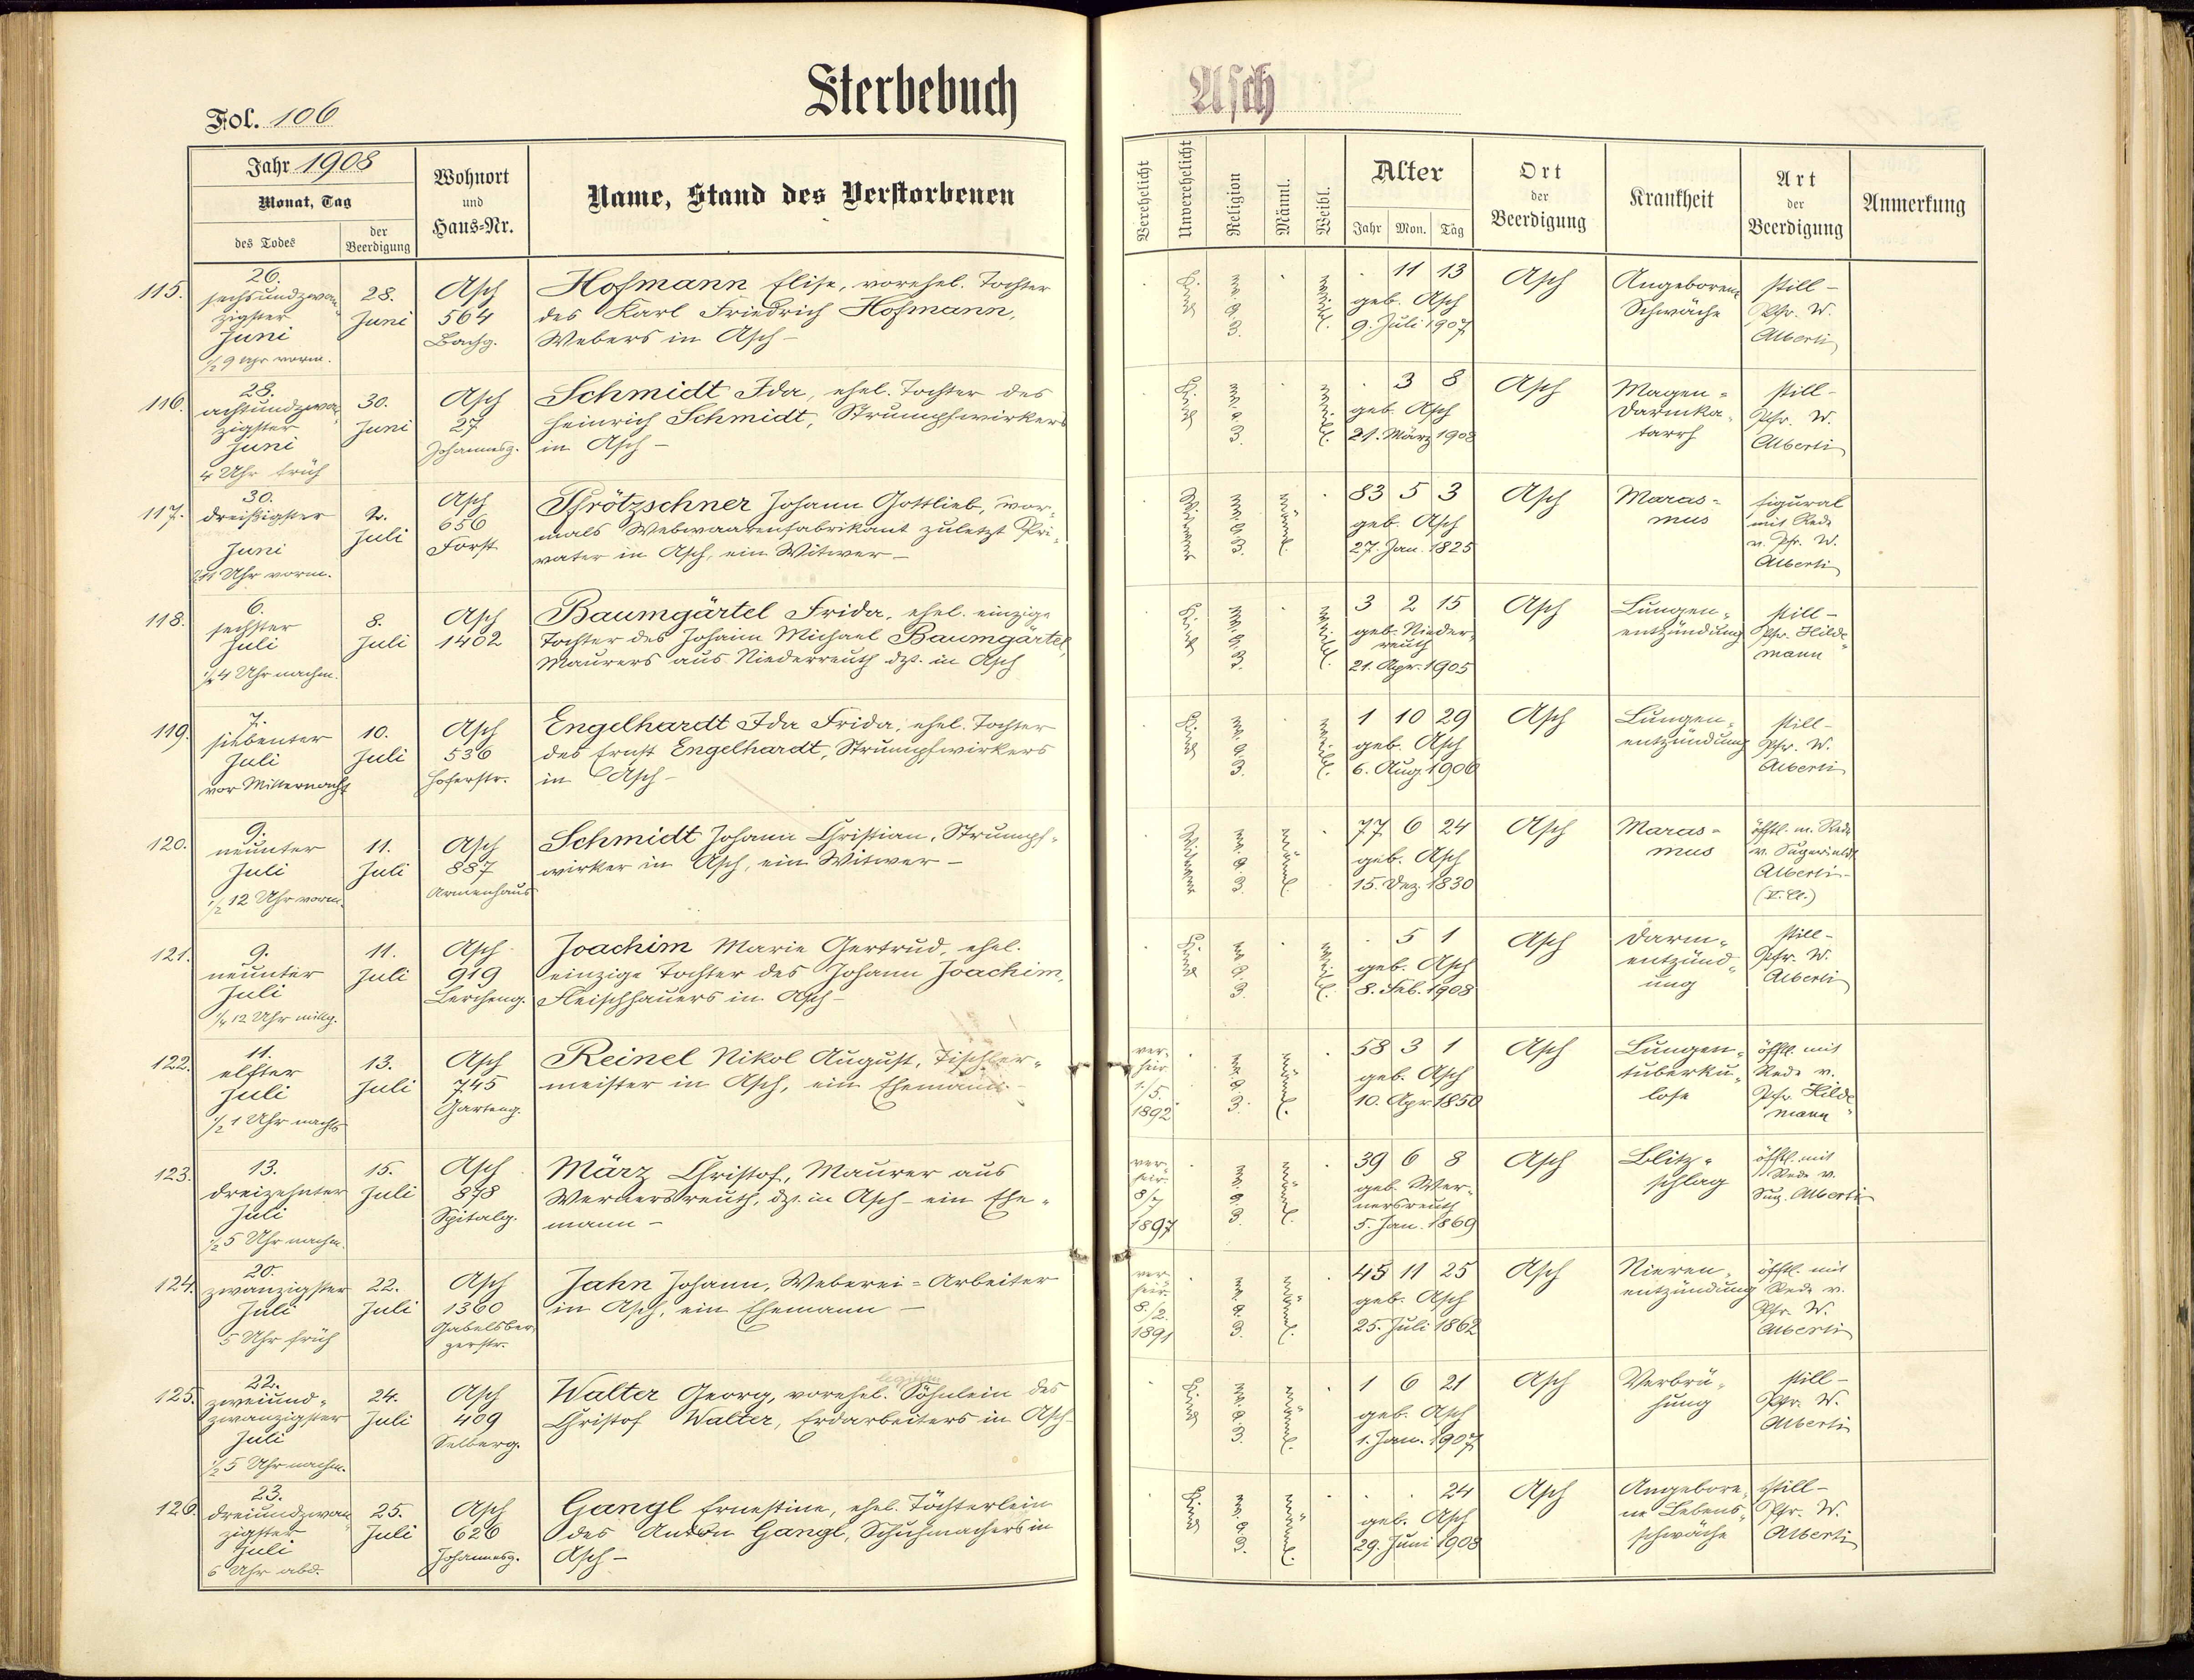 Sterbebuch
Asch
Fol. 106
Jahr 1908
Monat, Tag
des Todes
der Beerdigung
Wohnort
und
Haus-Nr.
Name, Stand des Verstorbenen
Verehelicht
Unverehelicht
Religion
Männl.
Weibl.
Alter
Jahr
Mon.
Tag
Ort
der
Beerdigung
Krankheit
Art
der
Beerdigung
Anmerkung
115.
26.
sechsundzwan-
zigster
Juni
1/2 9 Uhr vorm.
28.
Juni
Asch
564
Bachg.
Hofmann Elise, vorehel. Tochter
des Karl Friedrich Hofmann,
Webers in Asch –
Kind
weibl.
11 13
geb. Asch
9. Juli 1907
Asch
Angeborene
Schwäche
still –
Pfr. W.
Alberti
116.
28.
achtundzwan-
zigster
Juni
4 Uhr früh
30.
Juni
Asch
27
Johannesg.
Schmidt Ida, ehel. Tochter des
Heinrich Schmidt, Strumpfwirkers
in Asch –
Kind
weibl.
3 8
geb. Asch
21. März 1908
Asch
Magen-
darmka-
tarrh
still –
Pfr. W.
Alberti
117.
30.
dreißigster
Juni
11 Uhr vorm.
2.
Juli
Asch
656
Forst
Pfrötzschner Johann Gottlieb, vor-
mals Webwaarenfabrikant zuletzt Pri-
vater in Asch, ein Witwer –
Witwer
männl.
83 5 3
geb. Asch
27. Jan. 1825
Asch
Maras-
mus
figural
mit Rede
v. Pfr. W.
Alberti
118.
6.
sechster
Juli
1/4 4 Uhr nachm.
8.
Juli
Asch
1402
Baumgärtel Frida, ehel. einzige
Tochter des Johann Michael Baumgärtel,
Maurers aus Niederreuth dzt. in Asch
Kind
weibl.
3 2 15
geb. Nieder-
reuth
21. Apr. 1905
Asch
Lungen-
entzündung
still –
Pfr. Hilde-
mann
119.
7.
siebenter
Juli
vor Mitternacht
10.
Juli
Asch
536
Hoferstr.
Engelhardt Ida Frida, ehel. Tochter
des Ernst Engelhardt, Strumpfwirkers
in Asch –
Kind
weibl.
1 10 29
geb. Asch
6. Aug. 1906
Asch
Lungen-
entzündung
still –
Pfr. W.
Alberti
120.
9.
neunter
Juli
1/2 12 Uhr vorm.
11.
Juli
Asch
887
Armenhaus
Schmidt Johann Christian, Strumpf-
wirker in Asch, ein Witwer –
Witwer
männl.
77 6 24
geb. Asch
15. Dez. 1830
Asch
Maras-
mus
öfftl. m. Rede
Alberti –
(V. Cl.)
121.
9.
neunter
Juli
1/4 12 Uhr mittg.
11.
Juli
Asch
919
Lercheng.
Joachim Marie Gertrud, ehel.
einzige Tochter des Johann Joachim,
Fleischhauers in Asch –
Kind
weibl.
5 1
geb. Asch
8. Feb. 1908
Asch
Darm-
entzünd-
ung
still –
Pfr. W.
Alberti
122.
11.
elfter
Juli
1/2 1 Uhr nachts
13.
Juli
Asch
745
Garteng.
Reinel Nikol August, Tischler-
meister in Asch, ein Ehemann –
ver-
heir.
1/5.
1892
männl.
58 3 1
geb. Asch
10. Apr. 1850
Asch
Lungen-
tuberku-
lose
öfftl. mit
Rede v.
Pfr. Hilde-
mann
123.
13.
dreizehnter
Juli
1/2 5 Uhr nachm.
15.
Juli
Asch
878
Spitalg.
März Christof, Maurer aus
Wernersreuth, dzt. in Asch ein Ehe-
mann –
ver-
heir.
8/7
1897
männl.
39 6 8
geb. Wer-
nersreuth
5. Jan. 1869
Asch
Blitz-
schlag
öfftl. mit
Rede v.
Sup. Alberti
124.
20.
zwanzigster
Juli
5 Uhr früh
22.
Juli
Asch
1360
Gabelsber-
gerstr.
Jahn Johann, Weberei-Arbeiter
in Asch, ein Ehemann –
ver-
heir.
8./2.
1891
männl.
45 11 25
geb. Asch
25. Juli 1862
Asch
Nieren-
entzündung
öfftl. mit
Rede v.
Pfr. W.
Alberti
125.
22.
zweiund-
zwanzigster
Juli
1/2 5 Uhr nachm.
24.
Juli
Asch
409
Selberg.
Walter Georg, vorehel. Söhnlein des
Christof Walter, Erdarbeiters in Asch –
Kind
männl.
1 6 21
geb. Asch
1. Jan. 1907
Asch
Verbrü-
hung
still –
Pfr. W.
Alberti
126.
23.
dreiundzwan-
zigster
Juli
6 Uhr abd.
25.
Juli
Asch
626
Johannesg.
Gangl Ernestine, ehel. Töchterlein
des Anton Gangl, Schuhmachers in
Asch –
Kind
24
geb. Asch
29. Juni 1908
Asch
Angebore-
ne Lebens-
schwäche
still –
Pfr. W.
Alberti